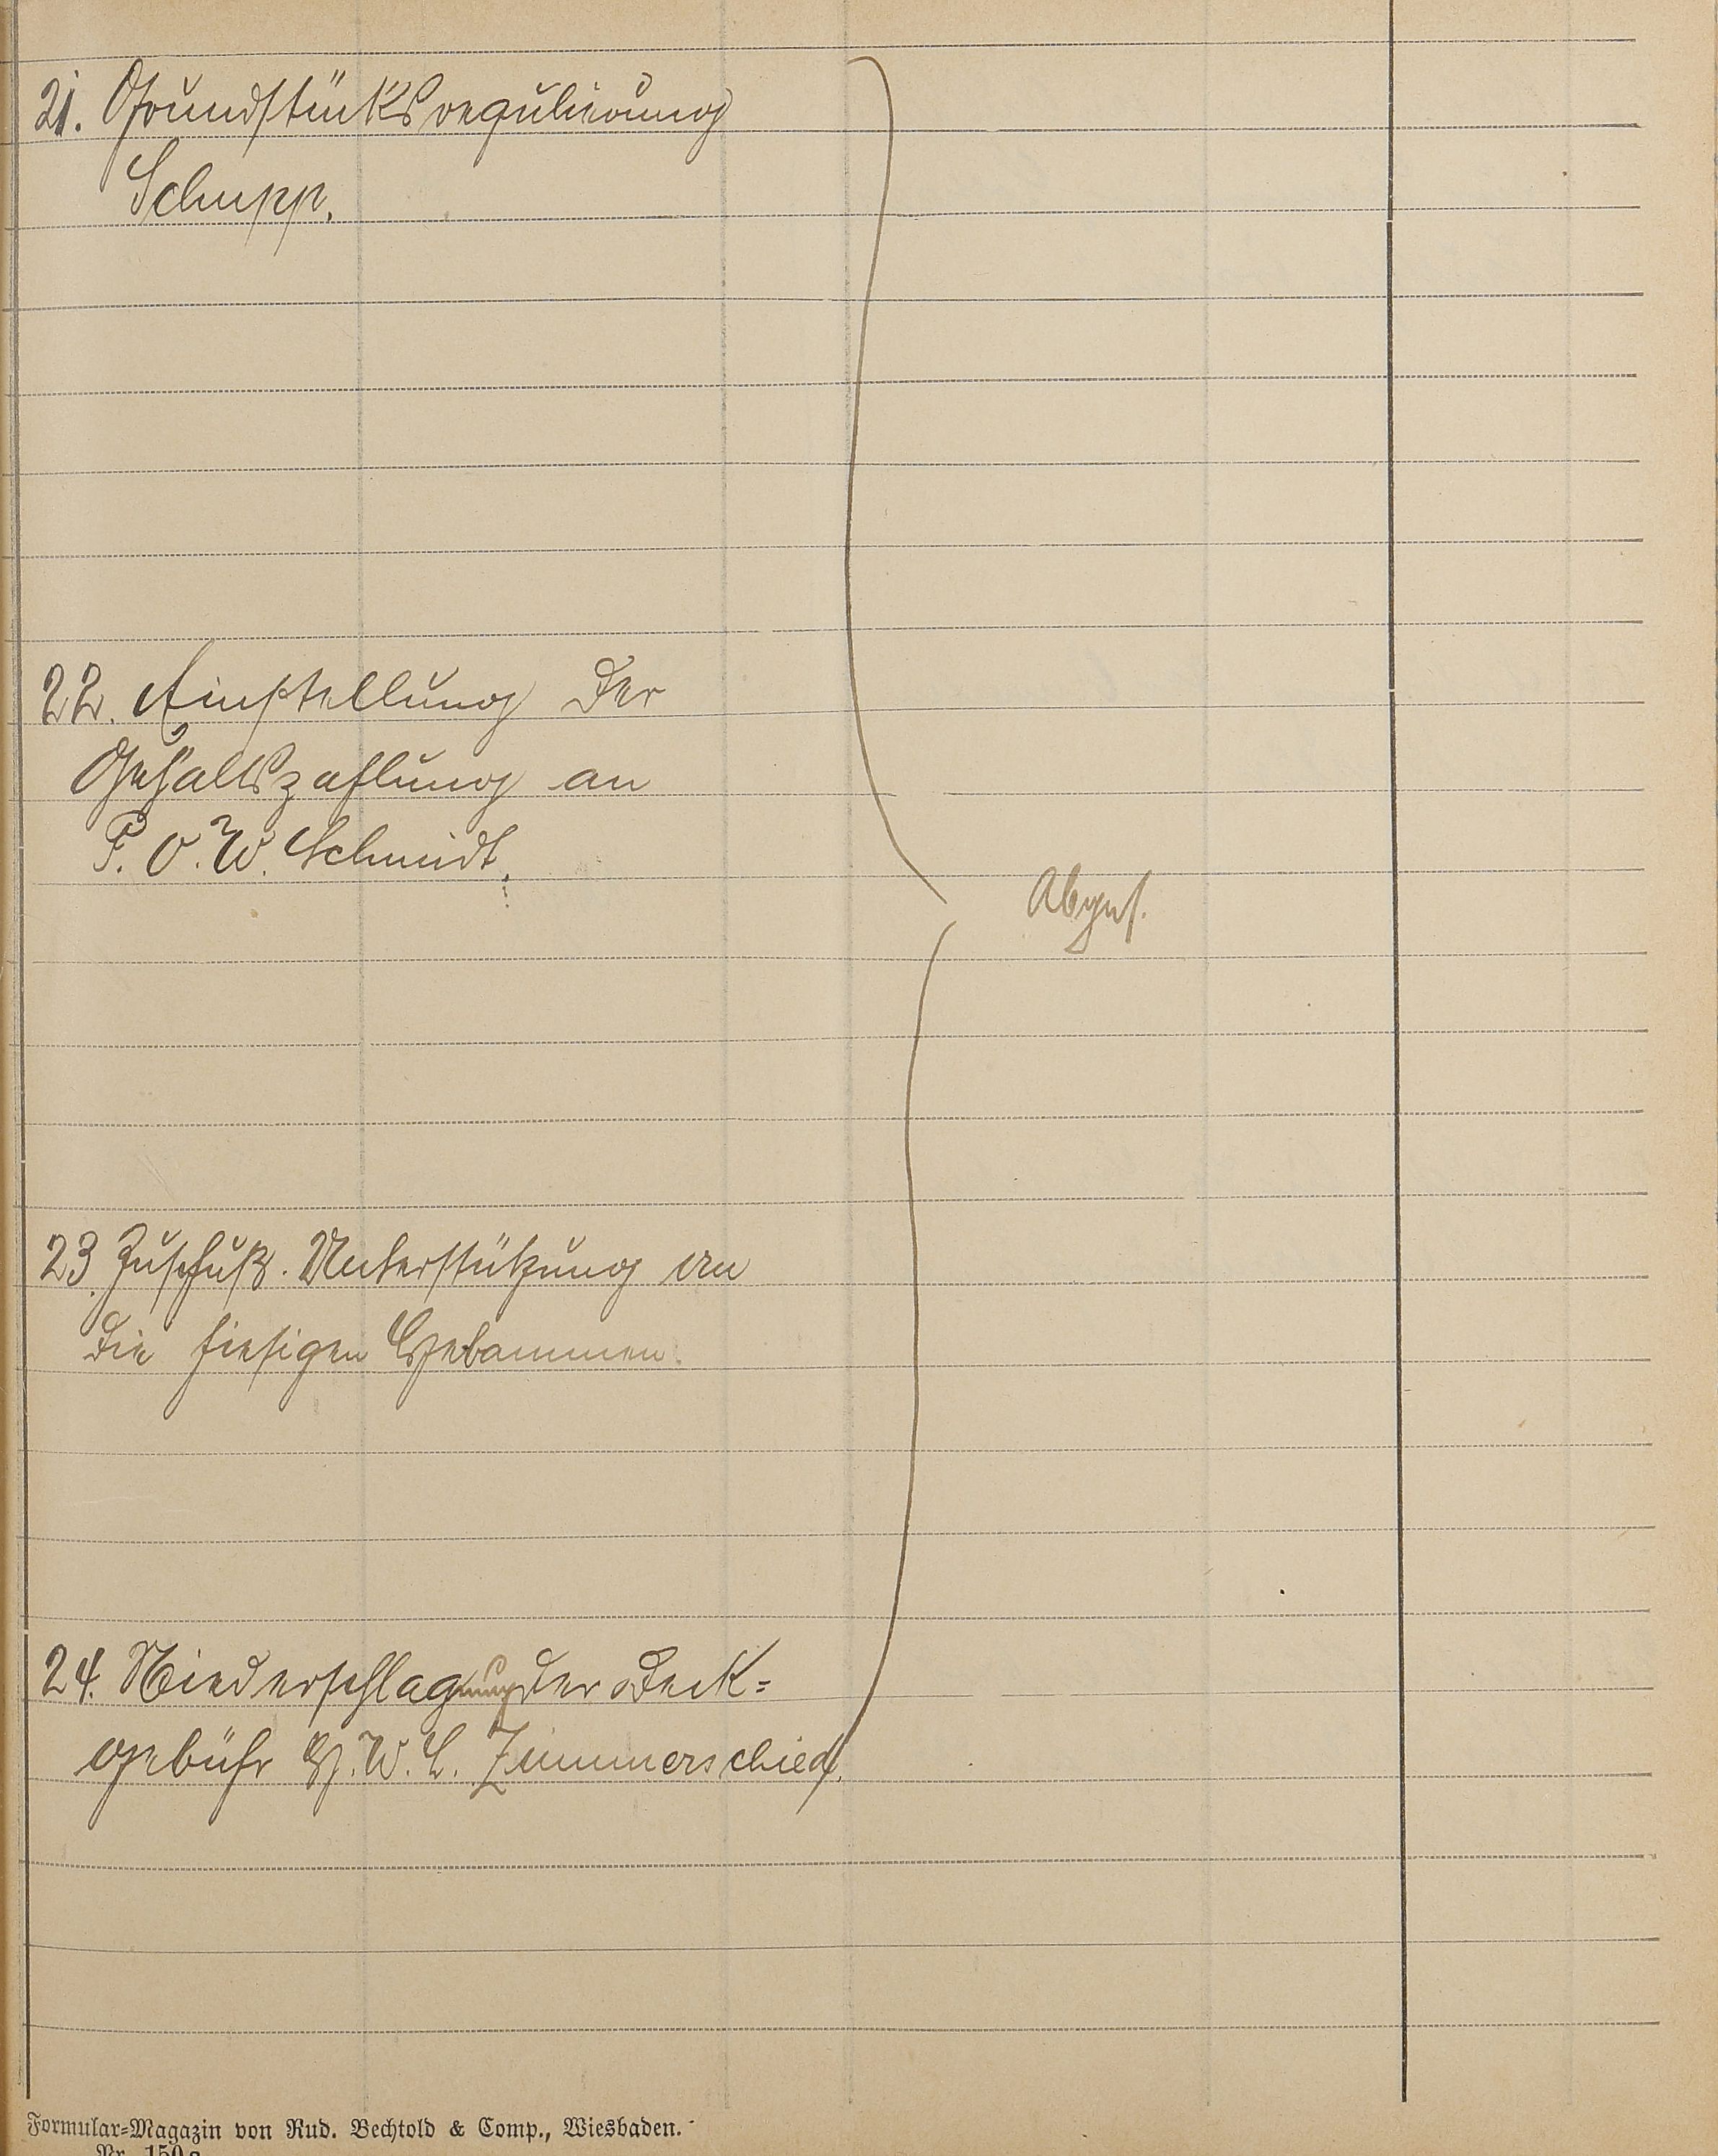 21. Grundstücksregulierung
Schupp.
22. Einstellung der
Gehaltszahlung an
F. O. W. Schmidt.
Abges.
23. Zuschuß. Unterstützung an
die hiesigen Hebammen.
24. Niederschlagung der Deck=
gebühr H. W. L. Zimmerschied.
Formular=Magazin von Rud. Bechtold & Comp., Wiesbaden.
Nr. 150